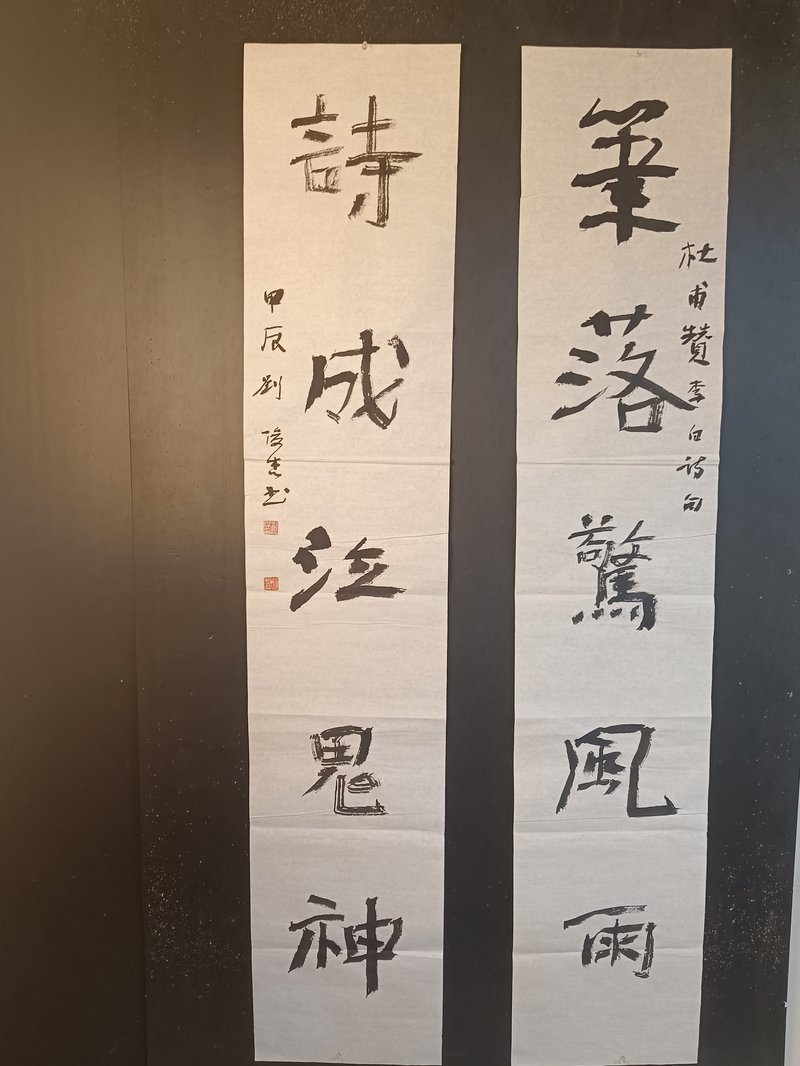 筆落驚風雨
杜甫贊李白诗句
詩成泣鬼神
甲辰劉俊杰书